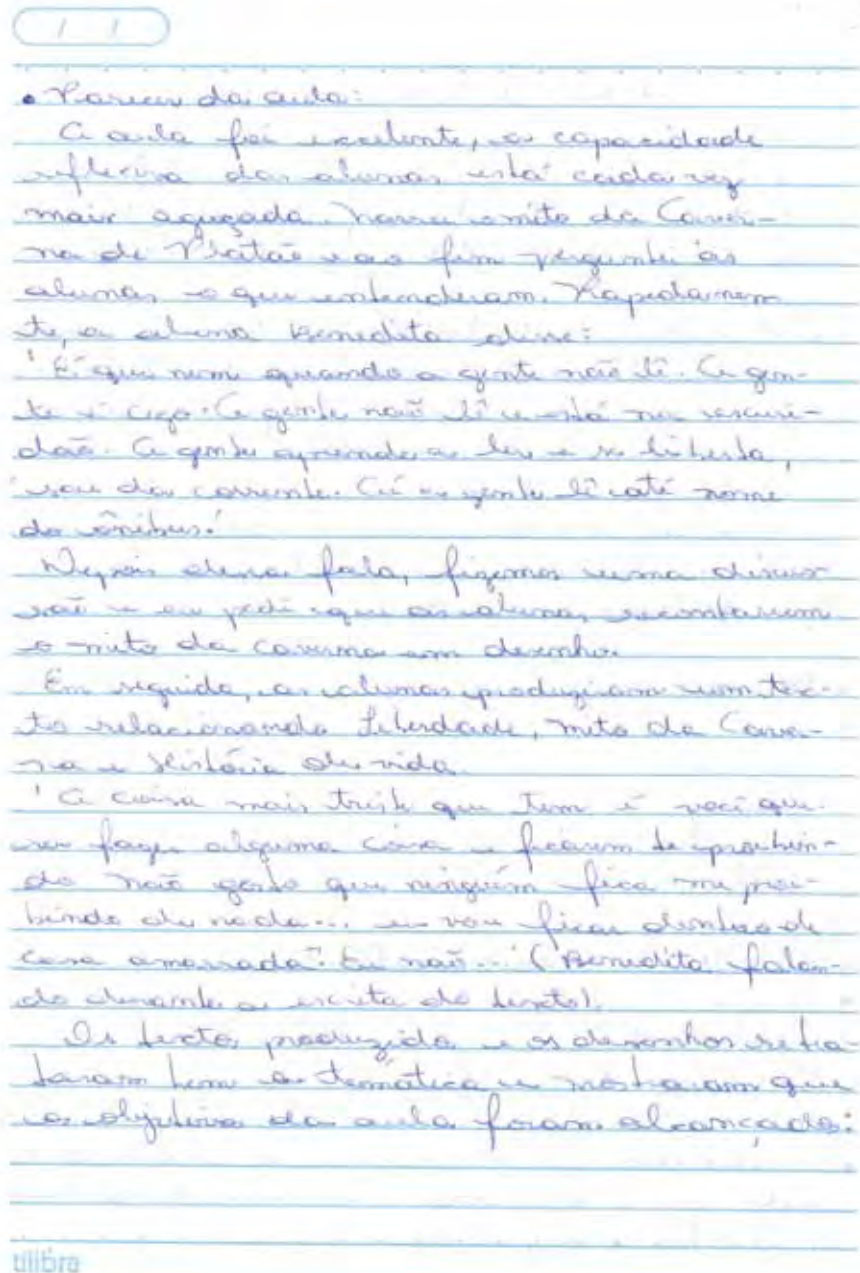 / /
• Parecer da aula:
A aula foi excelente, a capacidade
reflexiva das alunas está cada vez
mais aguçada. Narrei o mito da Caver-
na de Platão e ao fim perguntei às
alunas o que entenderam. Rapidamen
te, a aluna Benedita disse:
'É que nem quando a gente não lê. A gen-
te é cego. A gente não lê e está na escuri-
dão. A gente aprende a ler e se liberta,
sai da corrente. Aí a gente lê até nome
do ônibus.'
Depois dessa fala, fizemos uma discus
são e eu pedi que as alunas recontassem
o mito da caverna em desenho.
Em seguida, as alunas produziram um tex-
to relacionando Liberdade, mito da Caver-
na e História de vida.
'A coisa mais triste que tem é você que-
rer fazer alguma coisa e ficarem te proibin-
do não gosto que ninguém fica me proi-
bindo de nada... eu vou ficar dentro de
casa amarrada? Eu não...' (Benedita falan-
do durante a escrita do texto).
Os textos produzidos e os desenhos retra-
taram bem a temática e mostraram que
os objetivos da aula foram alcançados:
tilibra